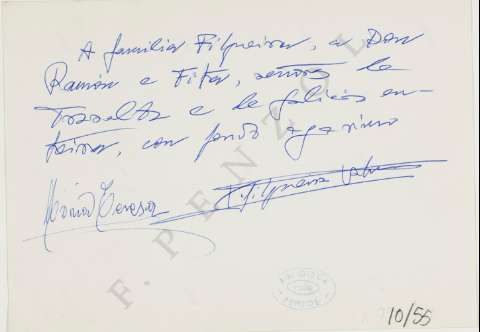 A familia Filgueira, a Don
Ramón e Fita, señores de
Tosalta e de Galicia en-
teira, con fondo agarimo
María Teresa
X. Filgueira Valverde
F. PENZOL
10/55